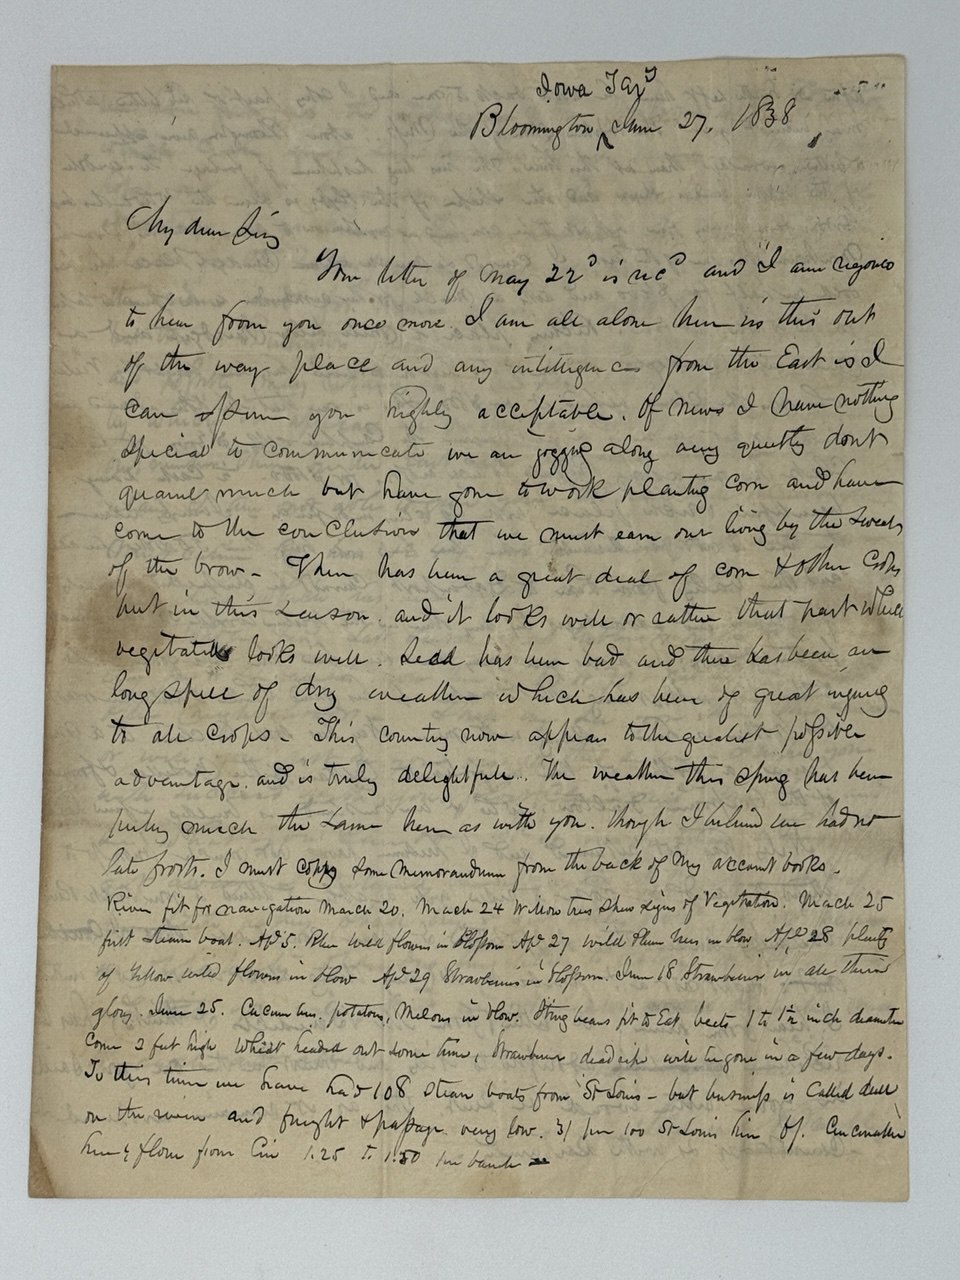 Iowa Ty
Bloomington, June 27. 1838
My dear Sir,
Your letter of May 22d is recd and I am rejoiced
to hear from you once more. I am all alone here in this out
of the way place and any intelligence from the East is I
can assure you highly acceptable. Of news I have nothing
special to communicate we are jogging along very quietly dont
quarrel much but have gone to work planting corn and have
come to the conclusion that we must earn our living by the sweat
of the brow - There has been a great deal of corn & other crops
put in this season. and it looks well or rather that part which
vegitates looks well. Seed has been bad and there has been an
long spell of dry weather which has been of great injury
to all crops - This country now appears to the greatest possible
advantage. and is truly delightfull. The weather this spring has been
pretty much the same here as with you. though I believe we had no
late frosts. I must copy some memorandum from the back of my account books.
River fit for navigation March 20. March 24 Willow trees shew signs of Vegetation. March 25
first steam boat. Apl 5. Blue wild flowers in blossom Apl 27 wild Plum trees in blow Apl 28 plenty
of yellow wild flowers in blow Apl 29 Strawberries in blossom. June 18 Strawberries in all their
glory. June 25. Cucumbers, potatoes, Melons in blow. String beans fit to Eat beets 1 to 1½ inch diameter
Corn 2 feet high Wheat headed out some time, Strawberries dead ripe will be gone in a few days.
To this time we have had 108 steam boats from St Louis - but business is called dull
on the river and freight & passage very low. 31 per 100 St Louis here Of. Cincinnatti
here & flour from Cin 1.25 to 1.50 per barrel